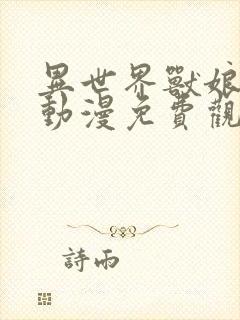 異世界獸娘
動漫免費觀
詩雨